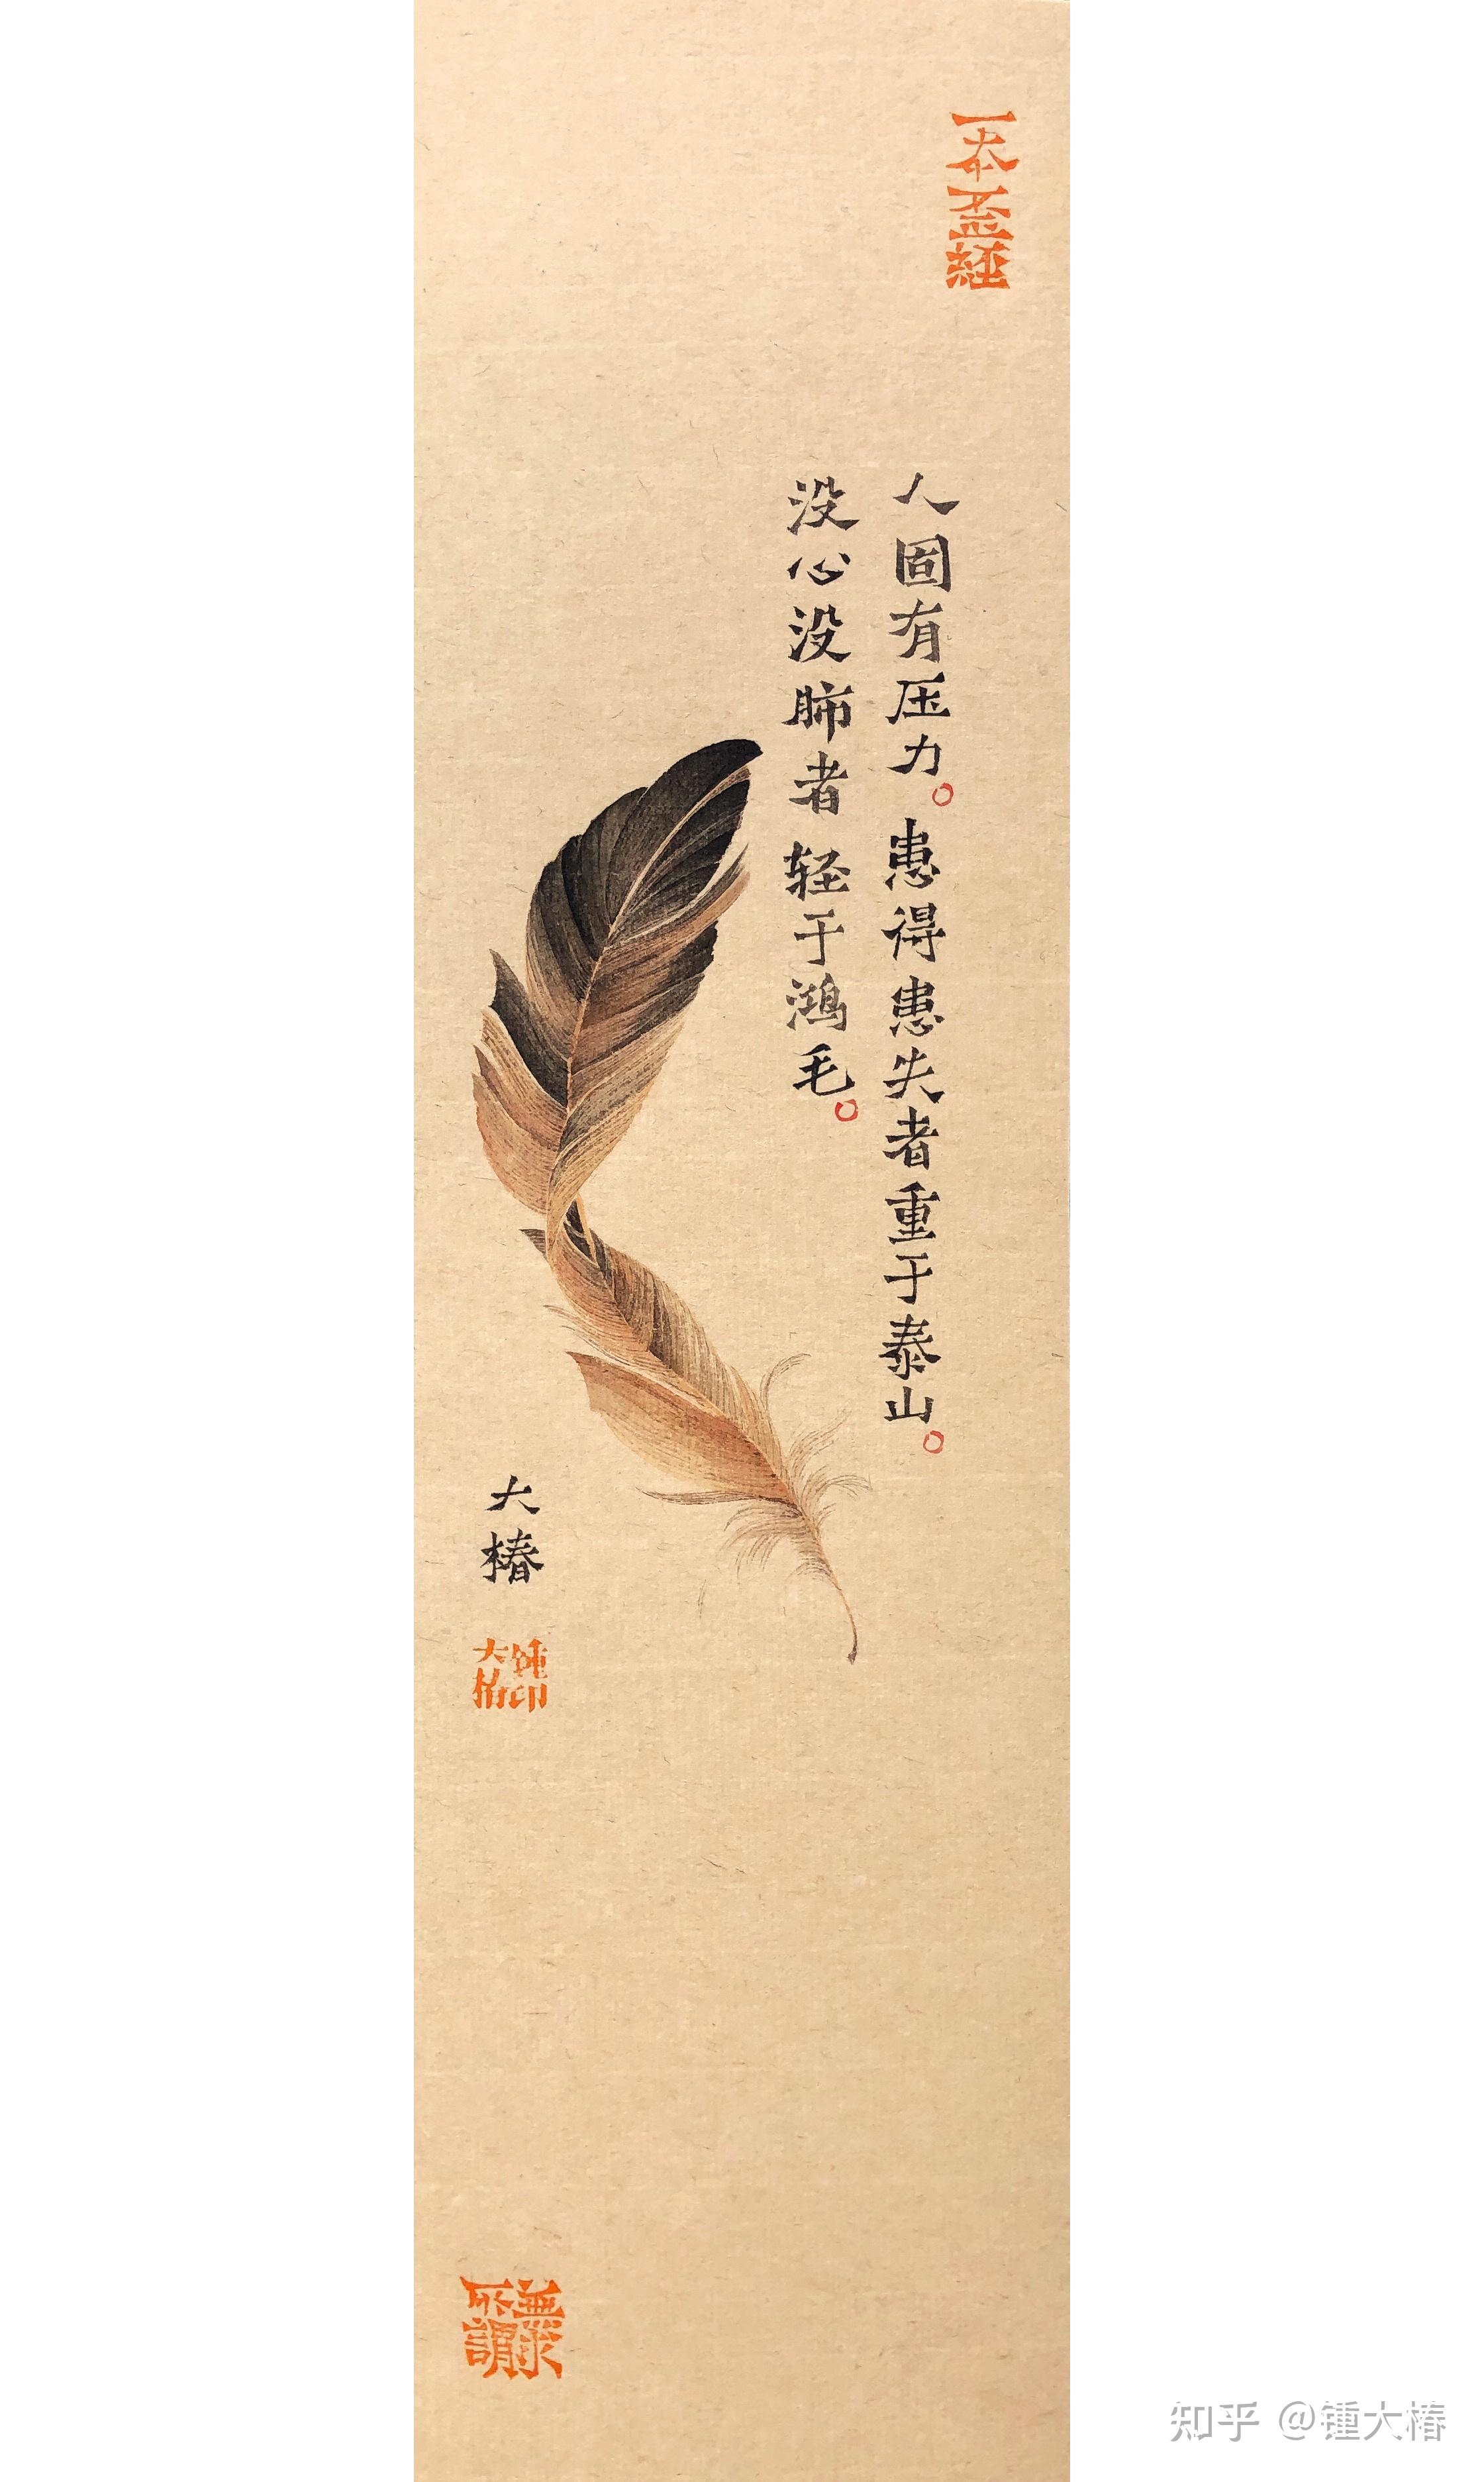 一本歪經
人固有压力。患得患失者重于泰山。
没心没肺者轻于鸿毛。
大椿
锺印
大椿
知乎 @锺大椿